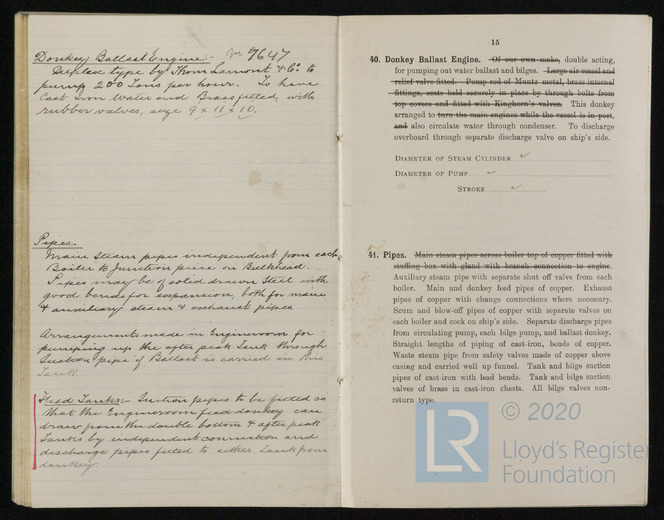 Donkey Ballast Engine:- No 7647
Duplex type by Thom Lamont & Co. to
pump 200 Tons per hour. To have
Cast Iron Water end Brass fitted, with
rubber valves, size 9 x 11 x 10.
Pipes:-
Main steam pipes independent from each
Boiler to Junction piece on Bulkhead.
Pipes may be of solid drawn Steel with
good bends for expansion, both for main
& auxiliary steam & exhaust pipes
Arrangements made in Engineroom for
pumping up the after peak Tank through
Suction pipe if Ballast is carried in this
Tank.
Feed Tanks:- Suction pipes to be fitted so
that the Engineroom feed donkey can
draw from the double bottom & after peak
Tanks by independent connection and
discharge pipes fitted to either Tank from
donkey.
15
40. Donkey Ballast Engine. Of our own make, double acting,
for pumping out water ballast and bilges. Large air vessel and
relief valve fitted. Pump rod of Muntz metal, brass internal
fittings, seats held securely in place by through bolts from
top covers and fitted with Kinghorn's valves. This donkey
arranged to turn the main engines while the vessel is in port,
and also circulate water through condenser. To discharge
overboard through separate discharge valve on ship's side.
Diameter of Steam Cylinder ✓
Diameter of Pump ✓
Stroke ✓
41. Pipes. Main steam pipes across boiler top of copper fitted with
stuffing box with gland with branch connection to engine.
Auxiliary steam pipe with separate shut off valve from each
boiler. Main and donkey feed pipes of copper. Exhaust
pipes of copper with change connections where necessary.
Scum and blow-off pipes of copper with separate valves on
each boiler and cock on ship's side. Separate discharge pipes
from circulating pump, each bilge pump, and ballast donkey.
Straight lengths of piping of cast-iron, bends of copper.
Waste steam pipe from safety valves made of copper above
casing and carried well up funnel. Tank and bilge suction
pipes of cast-iron with lead bends. Tank and bilge suction
valves of brass in cast-iron chests. All bilge valves non-
return type.
LR
© 2020
Lloyd's Register
Foundation